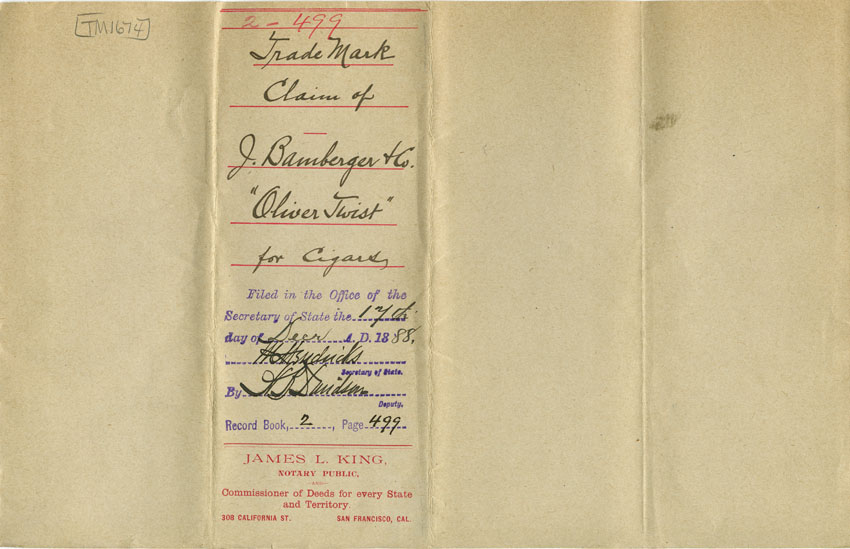 [TM1674]
2-499
Trade Mark
Claim of
J. Bamberger & Co.
"Oliver Twist"
for Cigars,
Filed in the Office of the
Secretary of State the 17th
day of Decr A.D. 1888.
W Hendricks
Secretary of State.
By Davidson
Deputy.
Record Book, 2, Page 499
JAMES L. KING,
NOTARY PUBLIC,
—AND—
Commissioner of Deeds for every State
and Territory.
308 CALIFORNIA ST. SAN FRANCISCO, CAL.